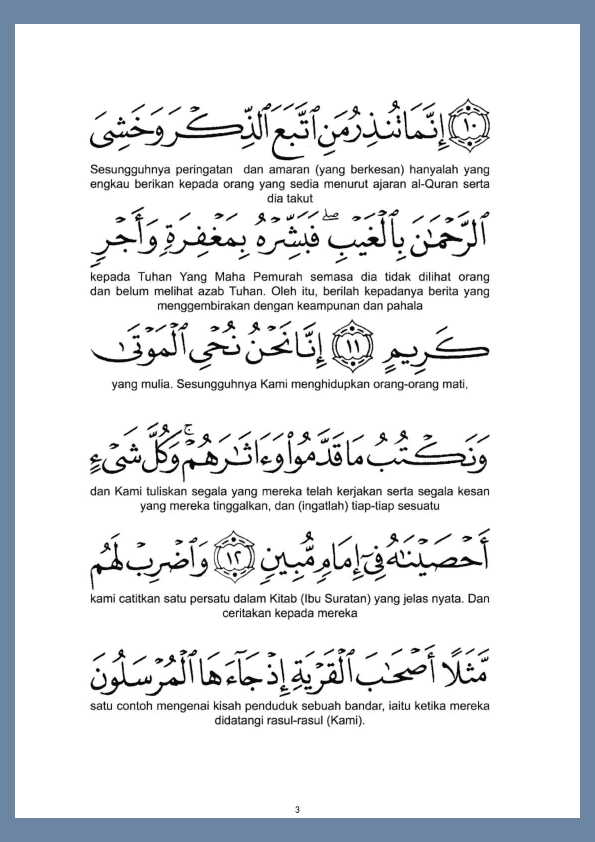 ۝١٠ إِنَّمَا تُنذِرُ مَنِ ٱتَّبَعَ ٱلذِّكْرَ وَخَشِىَ
Sesungguhnya peringatan dan amaran (yang berkesan) hanyalah yang
engkau berikan kepada orang yang sedia menurut ajaran al-Quran serta
dia takut
ٱلرَّحْمَٰنَ بِٱلْغَيْبِ ۖ فَبَشِّرْهُ بِمَغْفِرَةٍ وَأَجْرٍ
kepada Tuhan Yang Maha Pemurah semasa dia tidak dilihat orang
dan belum melihat azab Tuhan. Oleh itu, berilah kepadanya berita yang
menggembirakan dengan keampunan dan pahala
كَرِيمٍ ۝١١ إِنَّا نَحْنُ نُحْىِ ٱلْمَوْتَىٰ
yang mulia. Sesungguhnya Kami menghidupkan orang-orang mati,
وَنَكْتُبُ مَا قَدَّمُوا۟ وَءَاثَٰرَهُمْ ۚ وَكُلَّ شَىْءٍ
dan Kami tuliskan segala yang mereka telah kerjakan serta segala kesan
yang mereka tinggalkan, dan (ingatlah) tiap-tiap sesuatu
أَحْصَيْنَٰهُ فِىٓ إِمَامٍ مُّبِينٍ ۝١٢ وَٱضْرِبْ لَهُم
kami catitkan satu persatu dalam Kitab (Ibu Suratan) yang jelas nyata. Dan
ceritakan kepada mereka
مَّثَلًا أَصْحَٰبَ ٱلْقَرْيَةِ إِذْ جَآءَهَا ٱلْمُرْسَلُونَ
satu contoh mengenai kisah penduduk sebuah bandar, iaitu ketika mereka
didatangi rasul-rasul (Kami).
3